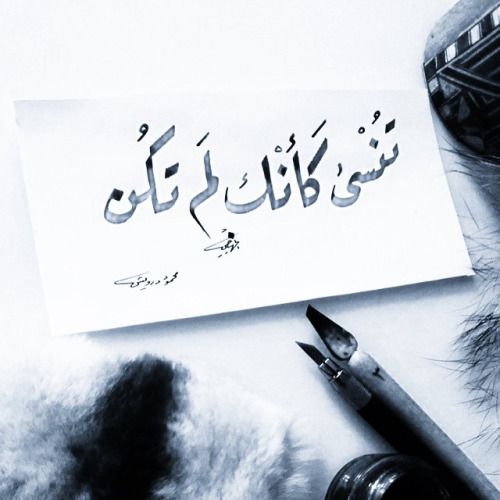 تُنْسىٰ كَأنْك لَم تكُن
محمود درويش